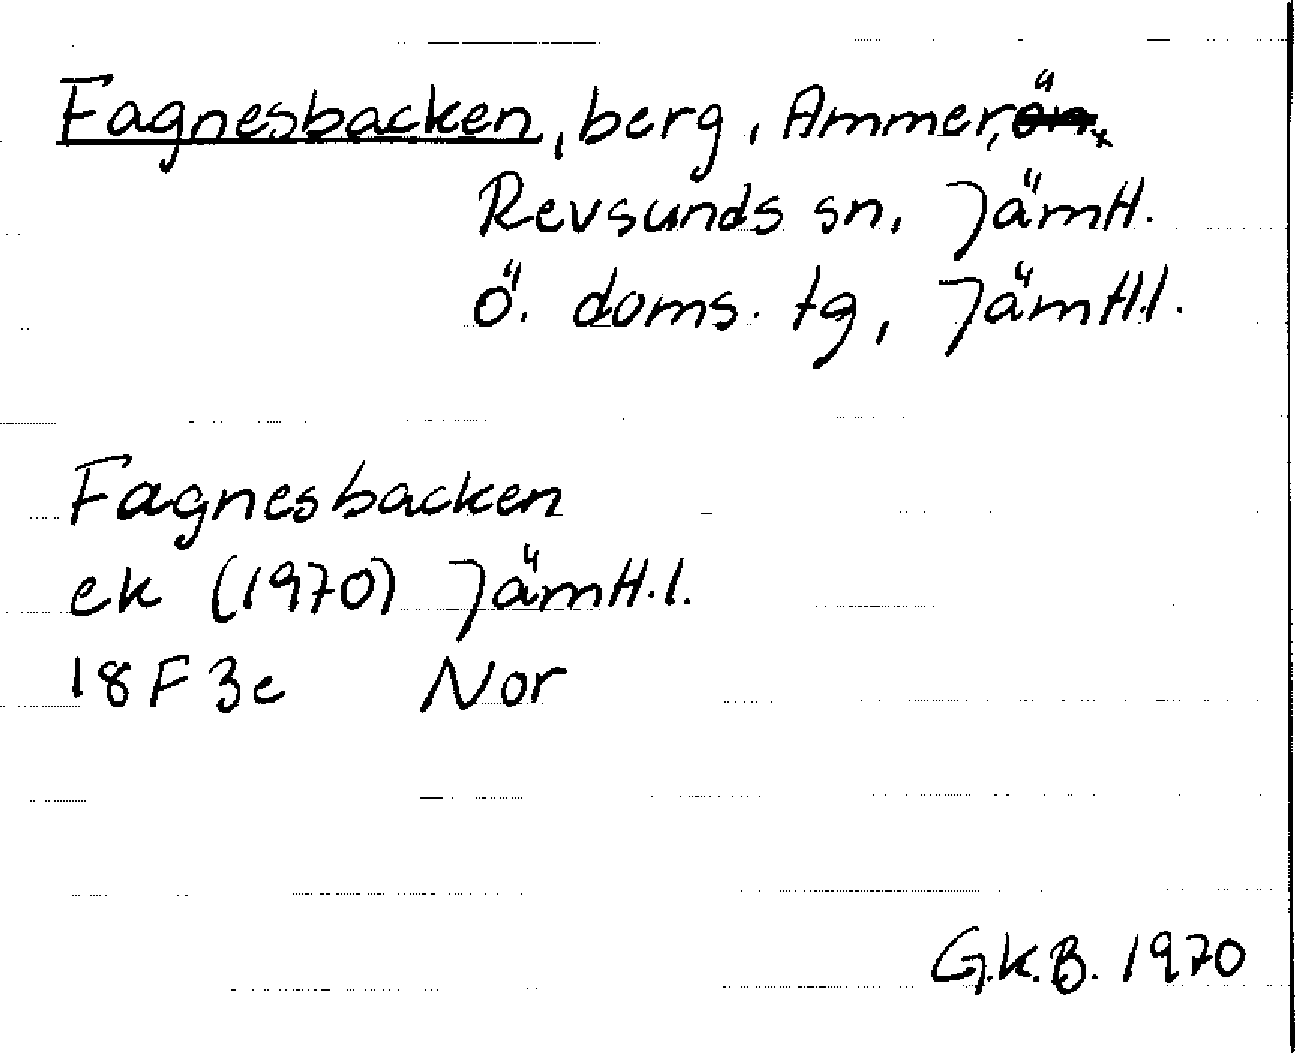 Fagnesbacken, berg, Ammer,
Revsunds sn, Jämtl.
Ö. doms. tg, Jämtl.l.
Fagnesbacken
ek (1970) Jämtl.l.
18F3c Nor
G.K.B. 1970